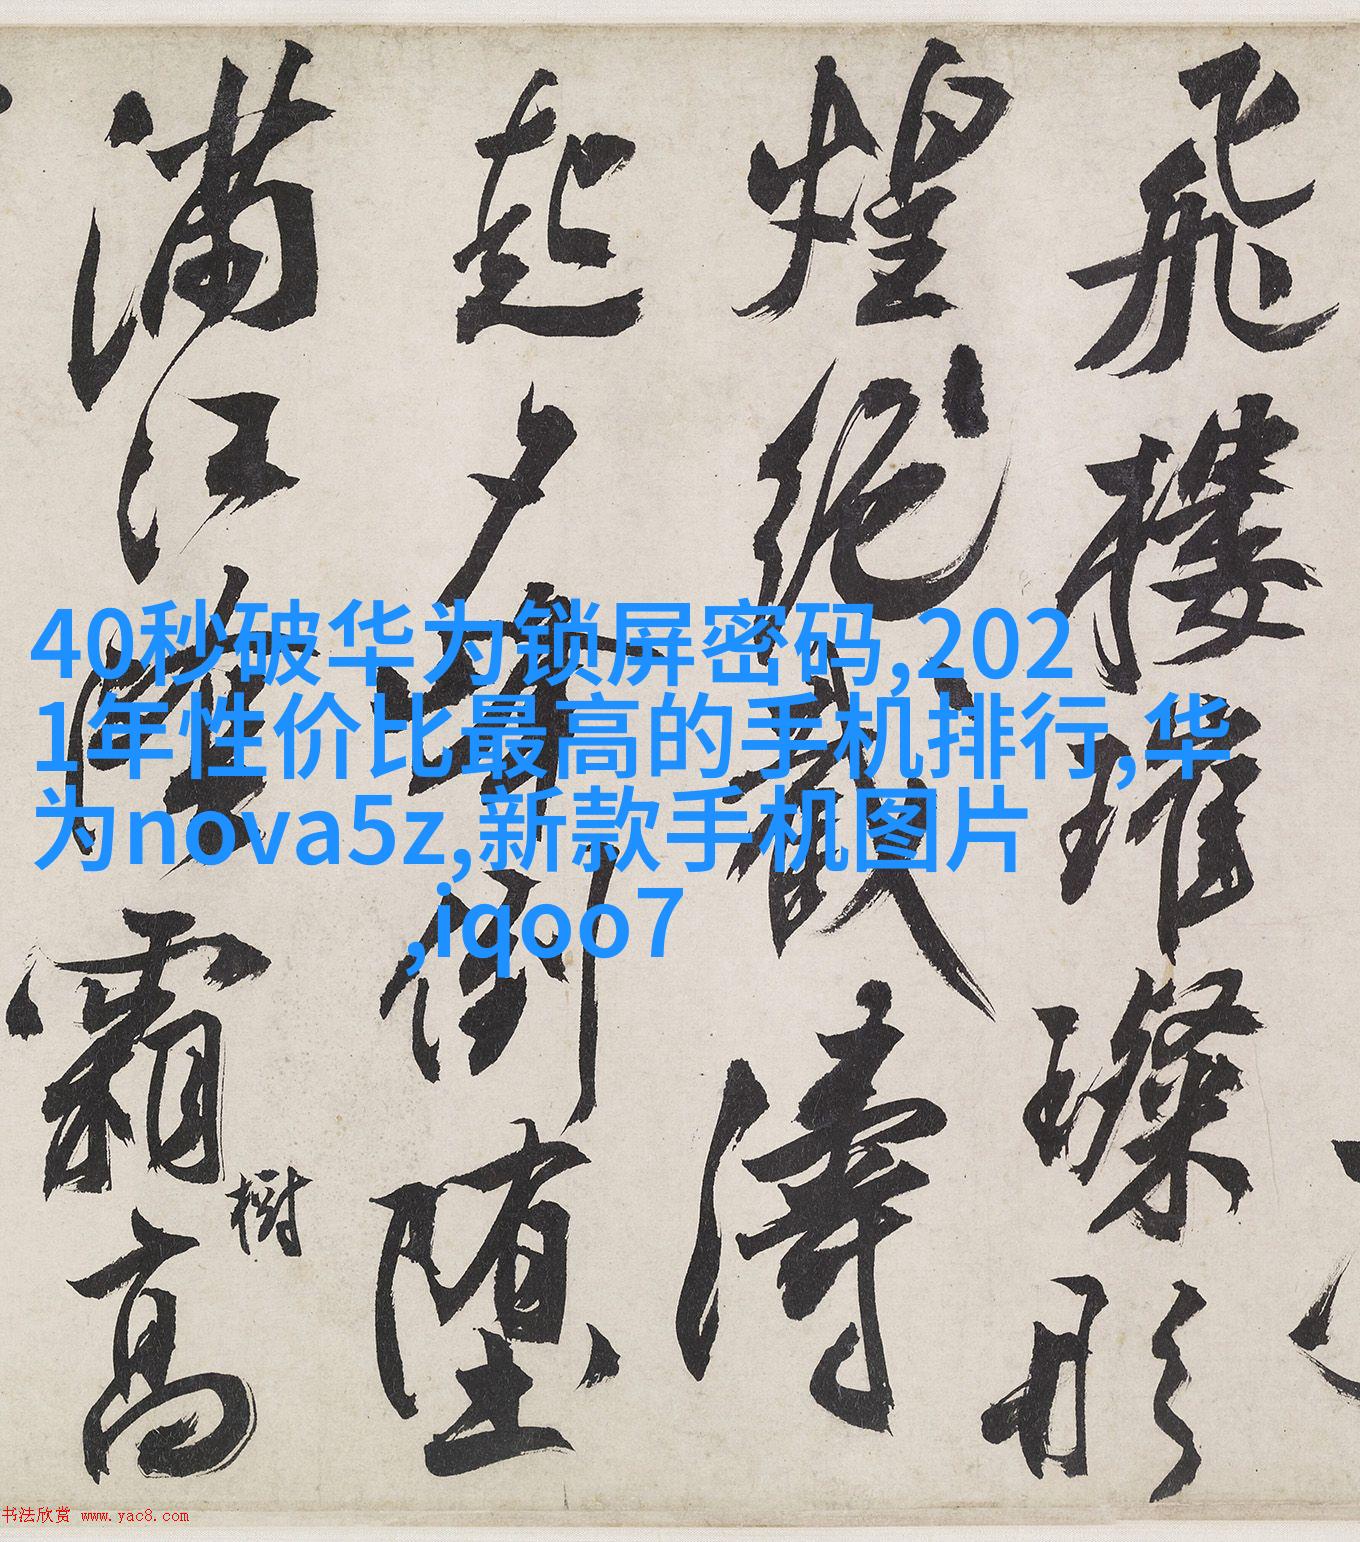 飛樓璀璨彤
煌絕𡾟濤
起夕陽倒堕
滿江陰霜高
樹
40秒破华为锁屏密码,202
1年性价比最高的手机排行,华
为nova5z,新款手机图片
,iqoo7
书法欣赏 www.yac8.com